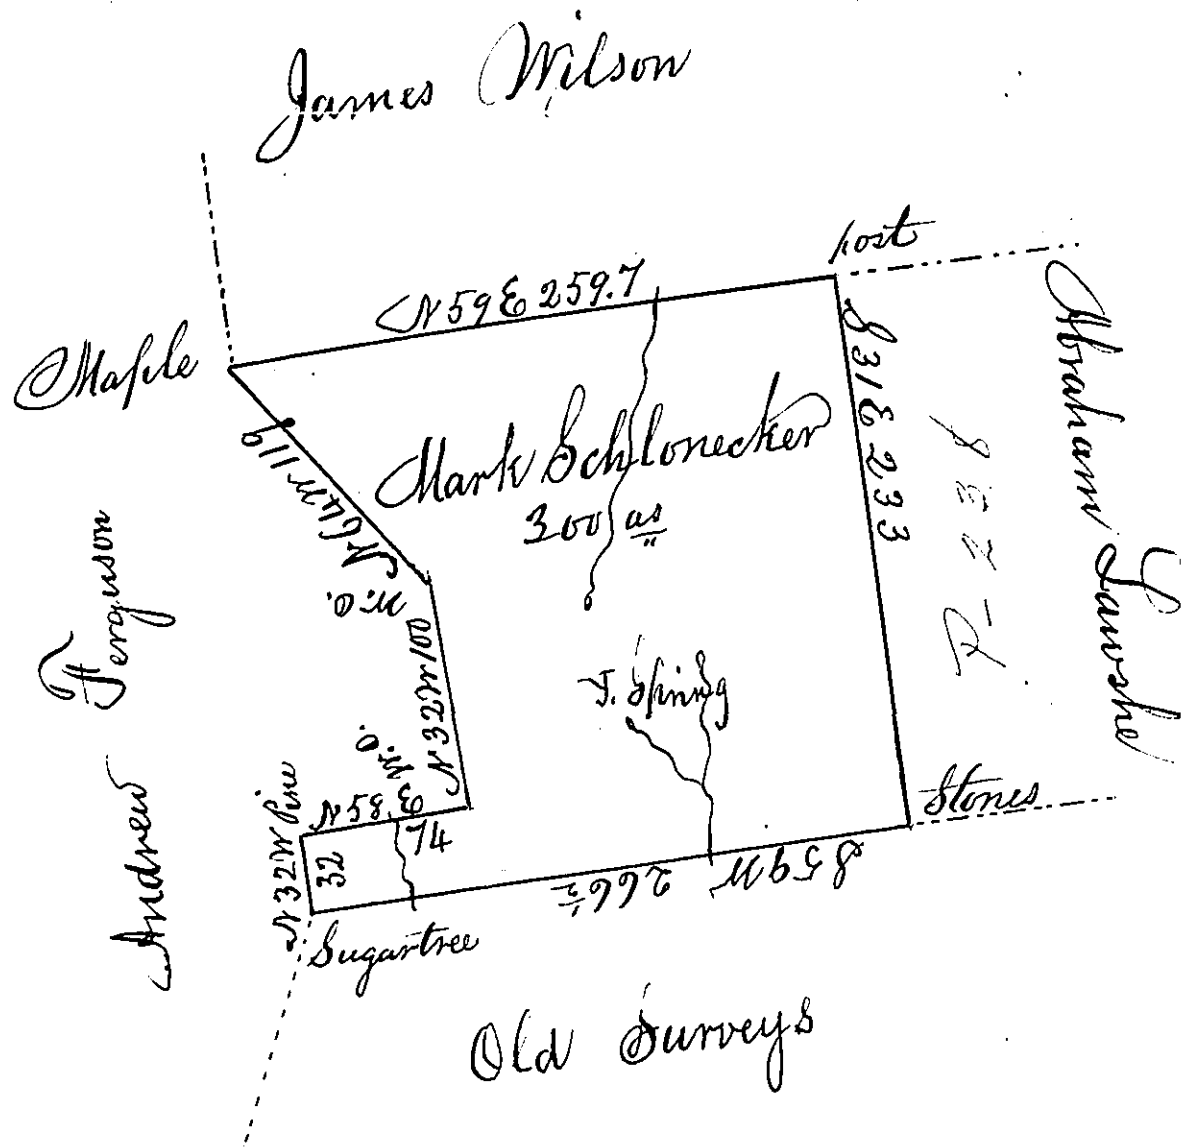 James Wilson
Post
N 59 E 259.7
Maple
S 31 E 233
Abraham Lawshe
N 64 W 119
Mark Schlonecker
300 as
P-238
W.O.
N 32 W 100
T. Spring
Andrew Ferguson
W.O.
N 58 E
74
Pine
N 32 W
32
Stones
S 59 W 266 1/2
Sugartree
Old Surveys